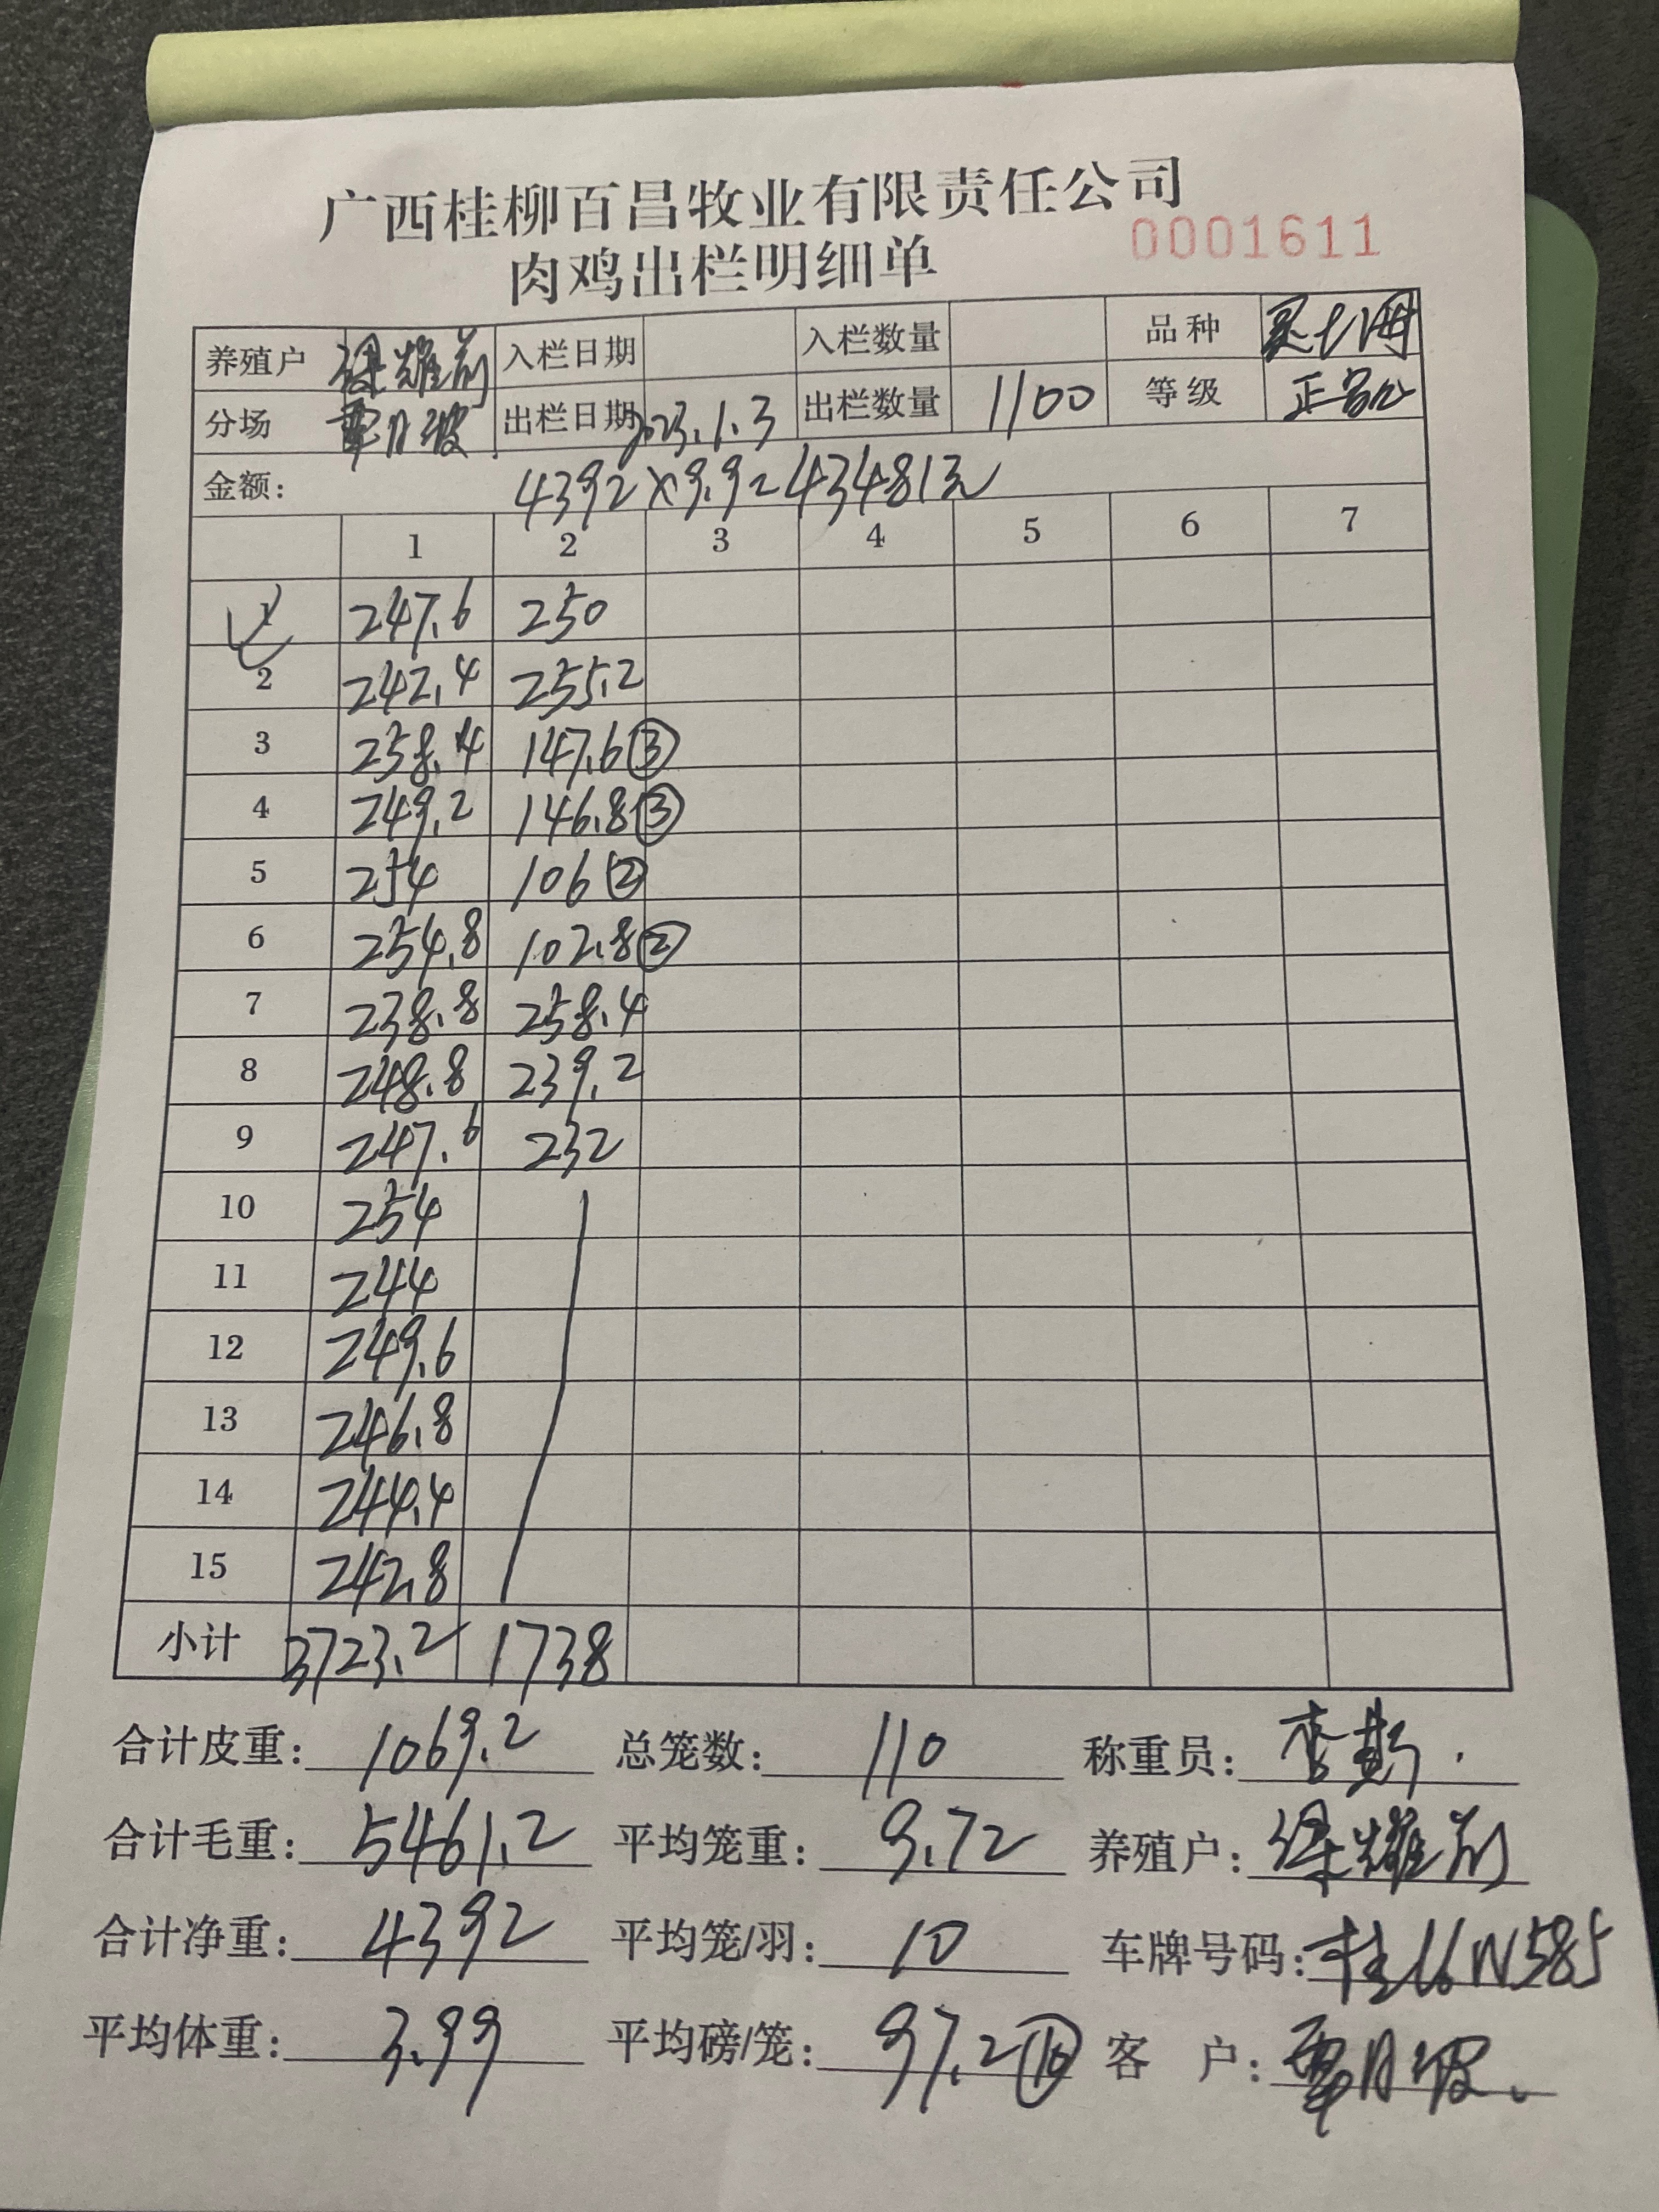 广西桂柳百昌牧业有限责任公司
肉鸡出栏明细单 0001611
养殖户 梁耀 入栏日期 入栏数量 品种
分场 覃月波 出栏日期 2023.1.3 出栏数量 1100 等级 正
金额: 4392×9.9=43481元
1 2 3 4 5 6 7
1 247.6 250
2 242.4 255.2
3 258.4 147.6③
4 249.2 146.8③
5 254 106②
6 254.8 102.8②
7 238.8 258.4
8 248.8 239.2
9 247.6 232
10 254
11 244
12 249.6
13 246.8
14 244.4
15 242.8
小计 3723.2 1738
合计皮重: 1069.2 总笼数: 110 称重员: 李
合计毛重: 5461.2 平均笼重: 9.72 养殖户: 梁耀
合计净重: 4392 平均笼/羽: 10 车牌号码: 桂 N585
平均体重: 3.99 平均磅/笼: 97.2⑩ 客 户: 覃月波